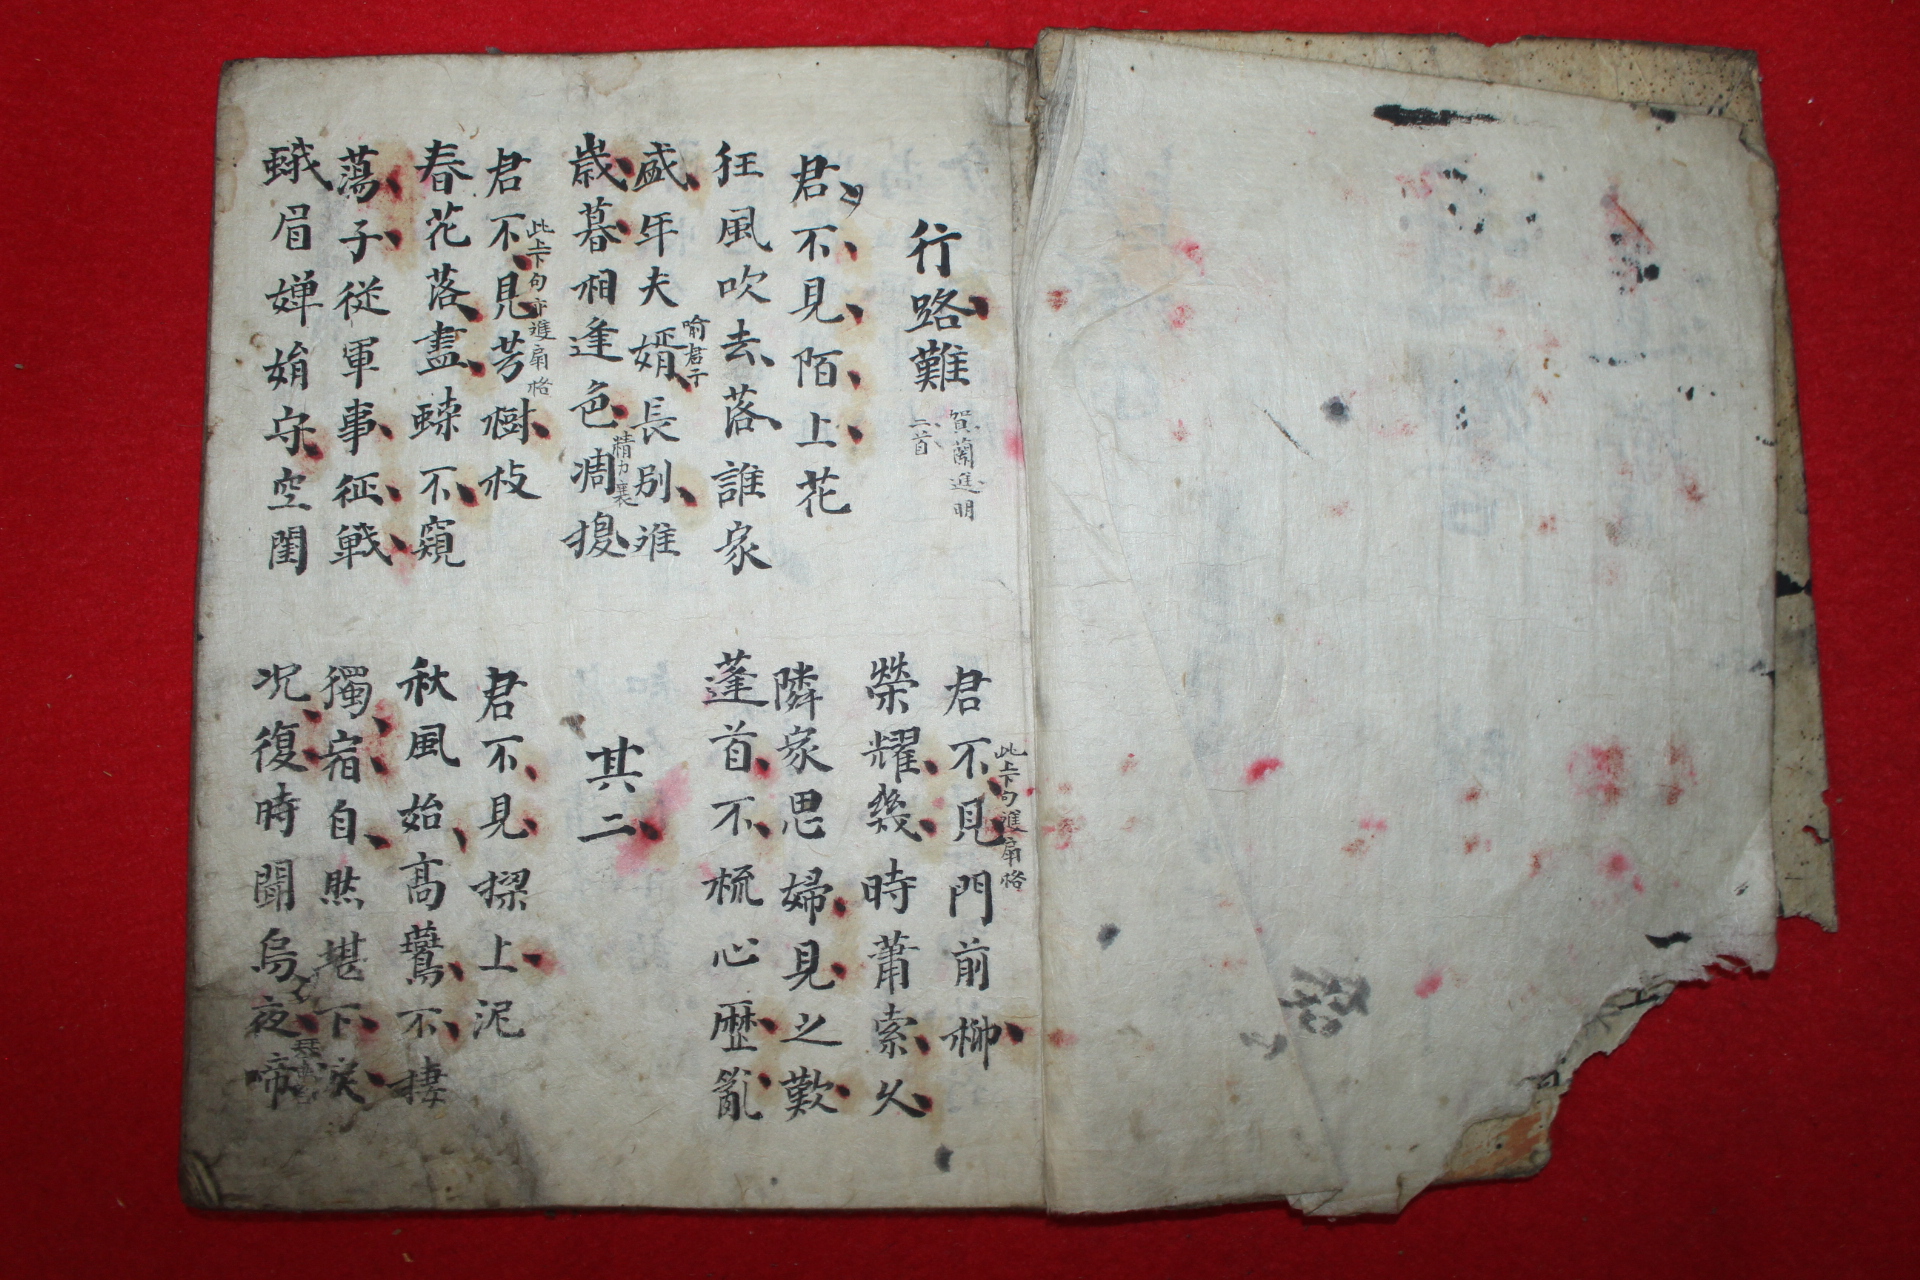 行路難
賀蘭進明
二首
君不見門前柳
此上下句進扇格
榮耀幾時蕭索久
君不見陌上花
狂風吹去落誰家
隣家思婦見之歎
蓬首不梳心歷亂
盛年夫婿長別難
喻君子
歲暮相逢色凋換
精力衰
其二
君不見芳樹枝
此上下句亦進扇格
春花落盡蜂不窺
君不見樑上泥
秋風始高鷰不棲
蕩子從軍事征戰
蛾眉嬋娟守空閨
獨宿自然堪下淚
况復時聞烏夜啼